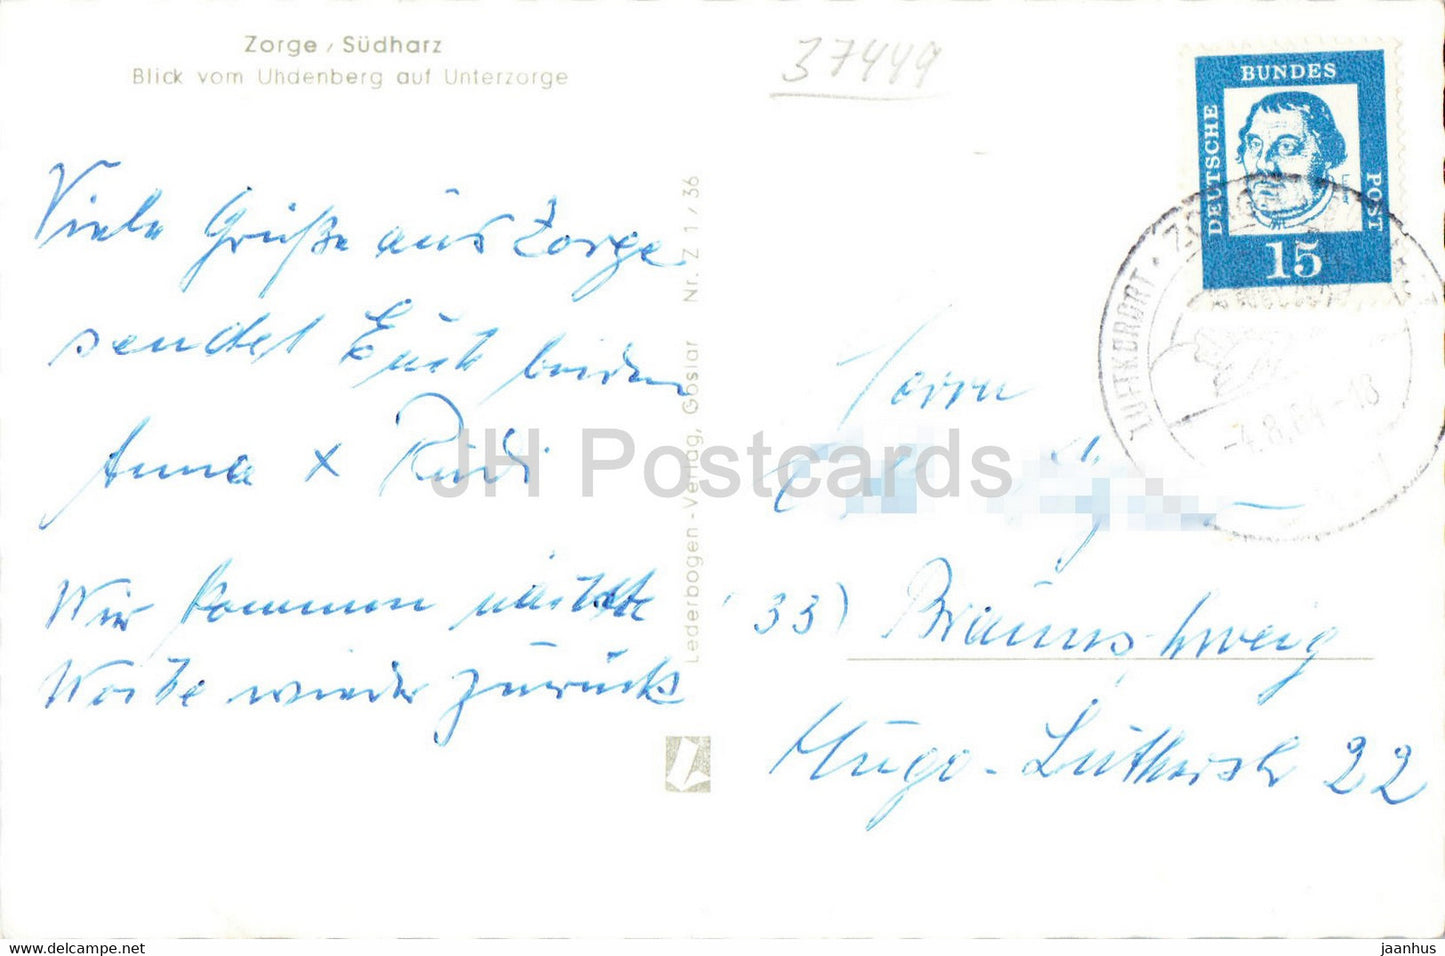 Zorge / Südharz
Blick vom Uhdenberg auf Unterzorge
37449
BUNDES
DEUTSCHE
POST
15
LUFTKURORT
-4.8.64-18
Viele Grüße aus Zorge
sendet Euch beiden
Anna + Rudi
Wir kommen nächste
Woche wieder zurück
Lederbogen-Verlag, Goslar Nr. Z 1/36
Herrn
(33) Braunschweig
Hugo-Lutherstr 22
JH Postcards
www.delcampe.net
jaanhus